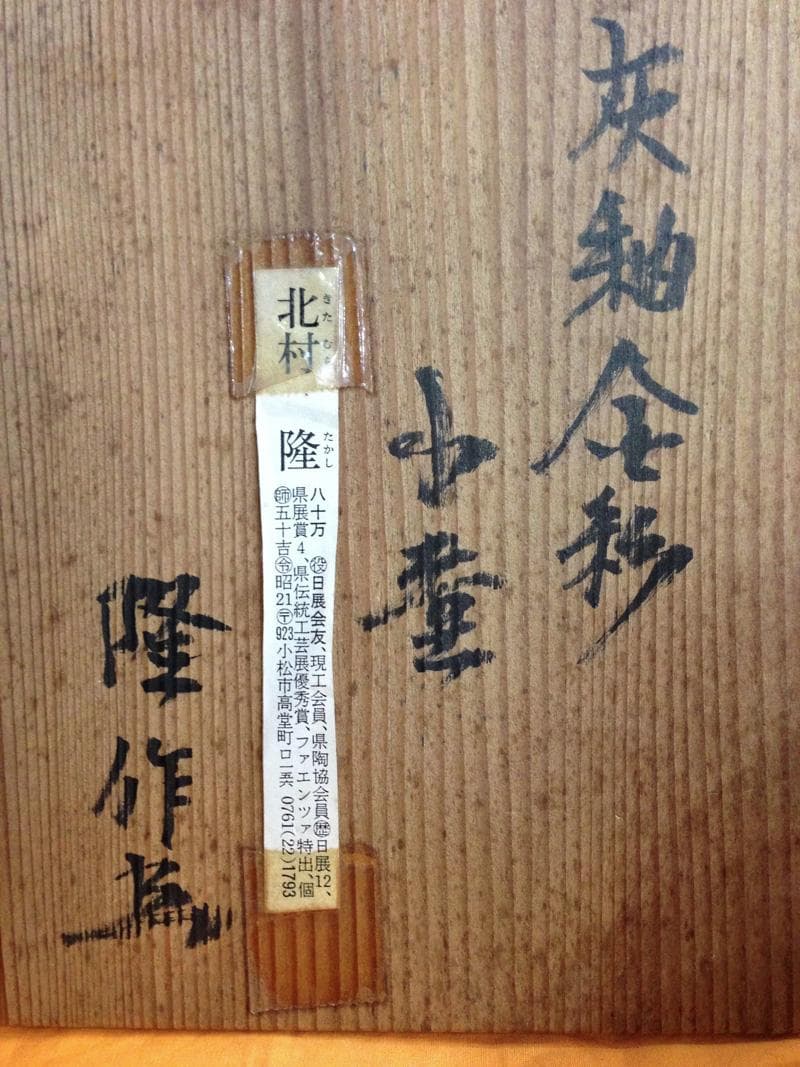 灰釉金彩
小壷
きたむら たかし
北村 隆
八十万 役日展会友、現工会員、県陶協会員歴日展12、
県展賞4、県伝統工芸展優秀賞、ファエンツァ特出、個
師五十吉令昭21〒923小松市高堂町ロ一五六 0761(22)1793
隆作